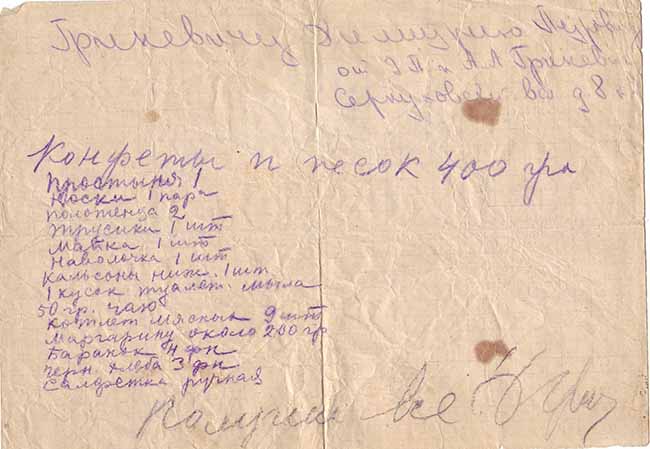 Гриневичу Димитрию Петрович
от Э П и А Л Гриневич
Серпуховской вал д 8 к
Конфеты и песок 400 гр
Простыня 1
Носки 1 пара
полотенца 2
Трусики 1 шт
Майка 1 шт
Наволочка 1 шт
Кальсоны ниж. 1 шт.
1 кусок туалет. мыла
50 гр. чаю
Котлет мясных 9 шт
Маргарину около 200 гр
Баранок 4 фн
Черн. хлеба 3 фн
Салфетка ручная
Получил все